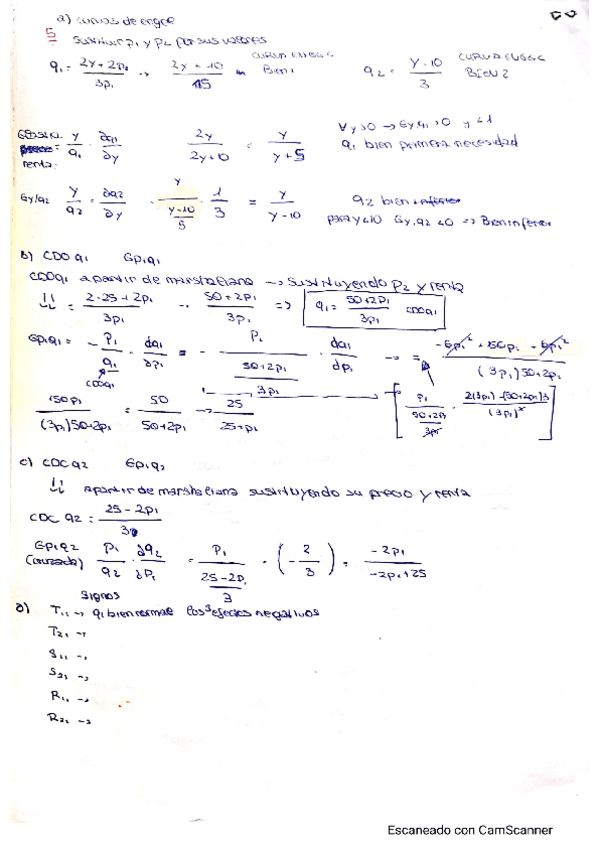 a) curvas de engel
5 Sustituir p₁ y p₂ por sus valores
q₁ = 2y+2p₁ / 3p₁ → 2y+10 / 15 CURVA ENGEL BIEN 1 q₂ = y-10 / 3 CURVA ENGEL BIEN 2
renta: y/q₁ · ∂q₁/∂y 2y / 2y+10 = y / y+5 ∀y>0 → Ey,q₁>0 y <1
q₁ bien primera necesidad
Ey/q₂ y/q₂ · ∂q₂/∂y y / (y-10 / 5) · 1/3 = y / y-10 q₂ bien inferior
para y<10 Ey,q₂ <0 => Bien inferior
b) CDO q₁ Ep₁q₁
CDOq₁ a partir de marshaliana → sustituyendo p₂ y renta
= 2·25+2p₁ / 3p₁ → 50+2p₁ / 3p₁ => q₁ = 50+2p₁ / 3p₁ CDOq₁
Ep₁q₁ = - p₁/q₁ · dq₁/dp₁ = - p₁ / (50+2p₁ / 3p₁) · dq₁/dp₁ → = -6p₁²+150p₁-6p₁² / (3p₁)50+2p₁
CDOq₁
150p₁ / (3p₁)50+2p₁ = 50 / 50+2p₁ → 25 / 25+p₁ [ p₁ / (50+2p₁ / 3p₁) · 2(3p₁)-(50+2p₁)3 / (3p₁)² ]
c) CDC q₂ Ep₁q₂
a partir de marshaliana sustituyendo su precio y renta
CDC q₂ = 25-2p₁ / 3
Ep₁q₂ (cruzada) p₁/q₂ · ∂q₂/∂p₁ = p₁ / (25-2p₁ / 3) · (-2/3) = -2p₁ / -2p₁+25
signos
d) T₁₁ → q₁ bien normal los 3 efectos negativos
T₂₁ →
S₁₁ →
S₂₁ →
R₁₁ →
R₂₁ →
Escaneado con CamScanner